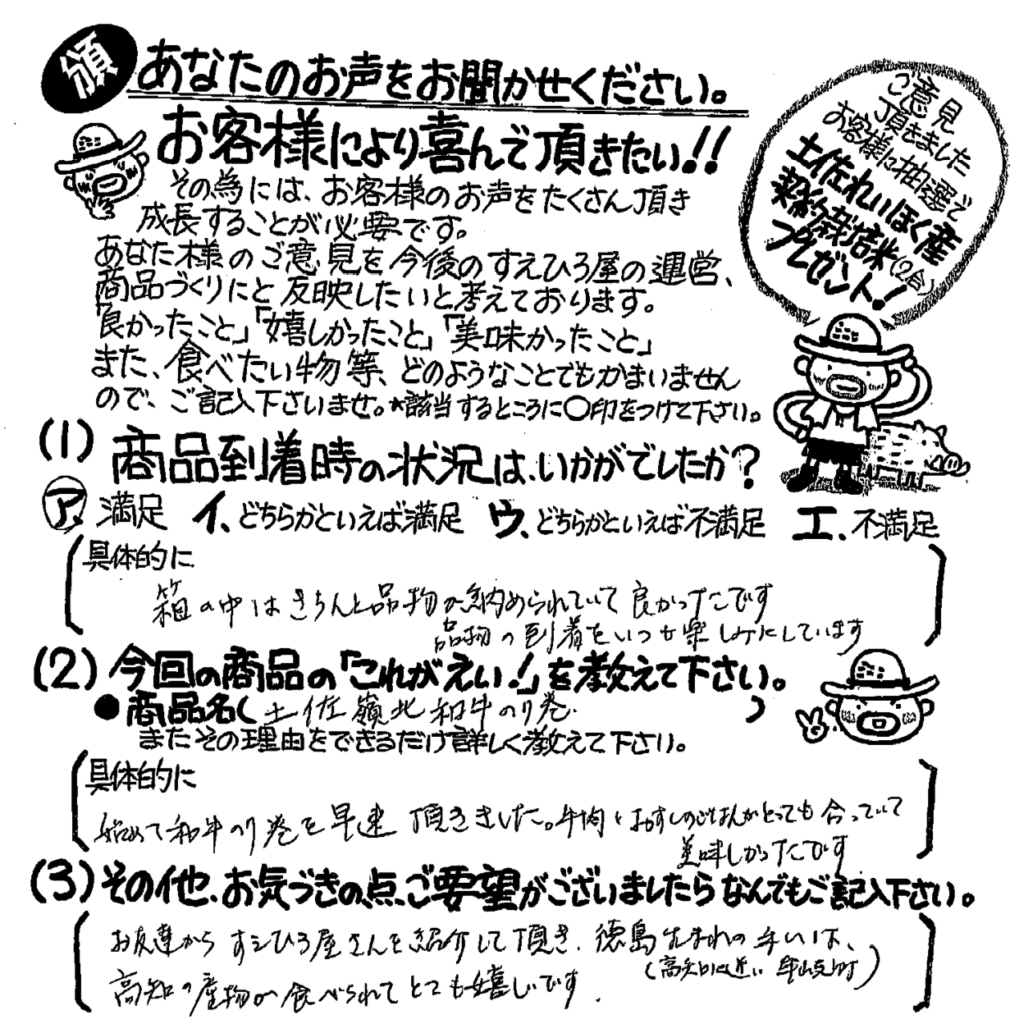 頒
あなたのお声をお聞かせください。
お客様により喜んで頂きたい!!
その為には、お客様のお声をたくさん頂き
成長することが必要です。
あなた様のご意見を今後のすえひろ屋の運営、
商品づくりにと反映したいと考えております。
「良かったこと」「嬉しかったこと」「美味かったこと」
また、食べたい物等、どのようなことでもかまいません
ので、ご記入下さいませ。*該当するところに○印をつけて下さい。
ご意見
頂きました
お客様に抽選で
土佐れいほく産
契約栽培米(2合)
プレゼント!
(1) 商品到着時の状況は、いかがでしたか?
ア. 満足 イ、どちらかといえば満足 ウ、どちらかといえば不満足 エ、不満足
具体的に
箱の中はきちんと品物が納められていて良かったです
品物の到着をいつも楽しみにしています
(2) 今回の商品の「これがえい!」を教えて下さい。
●商品名(土佐嶺北和牛のり巻)
またその理由をできるだけ詳しく教えて下さい。
具体的に
始めて和牛のり巻を早速頂きました。牛肉とおすしのごはんがとっても合っていて
美味しかったです
(3) その他、お気づきの点、ご要望がございましたらなんでもご記入下さい。
お友達からすえひろ屋さんを紹介して頂き、徳島生まれの
(高知に近い
高知の産物が食べられてとても嬉しいです.